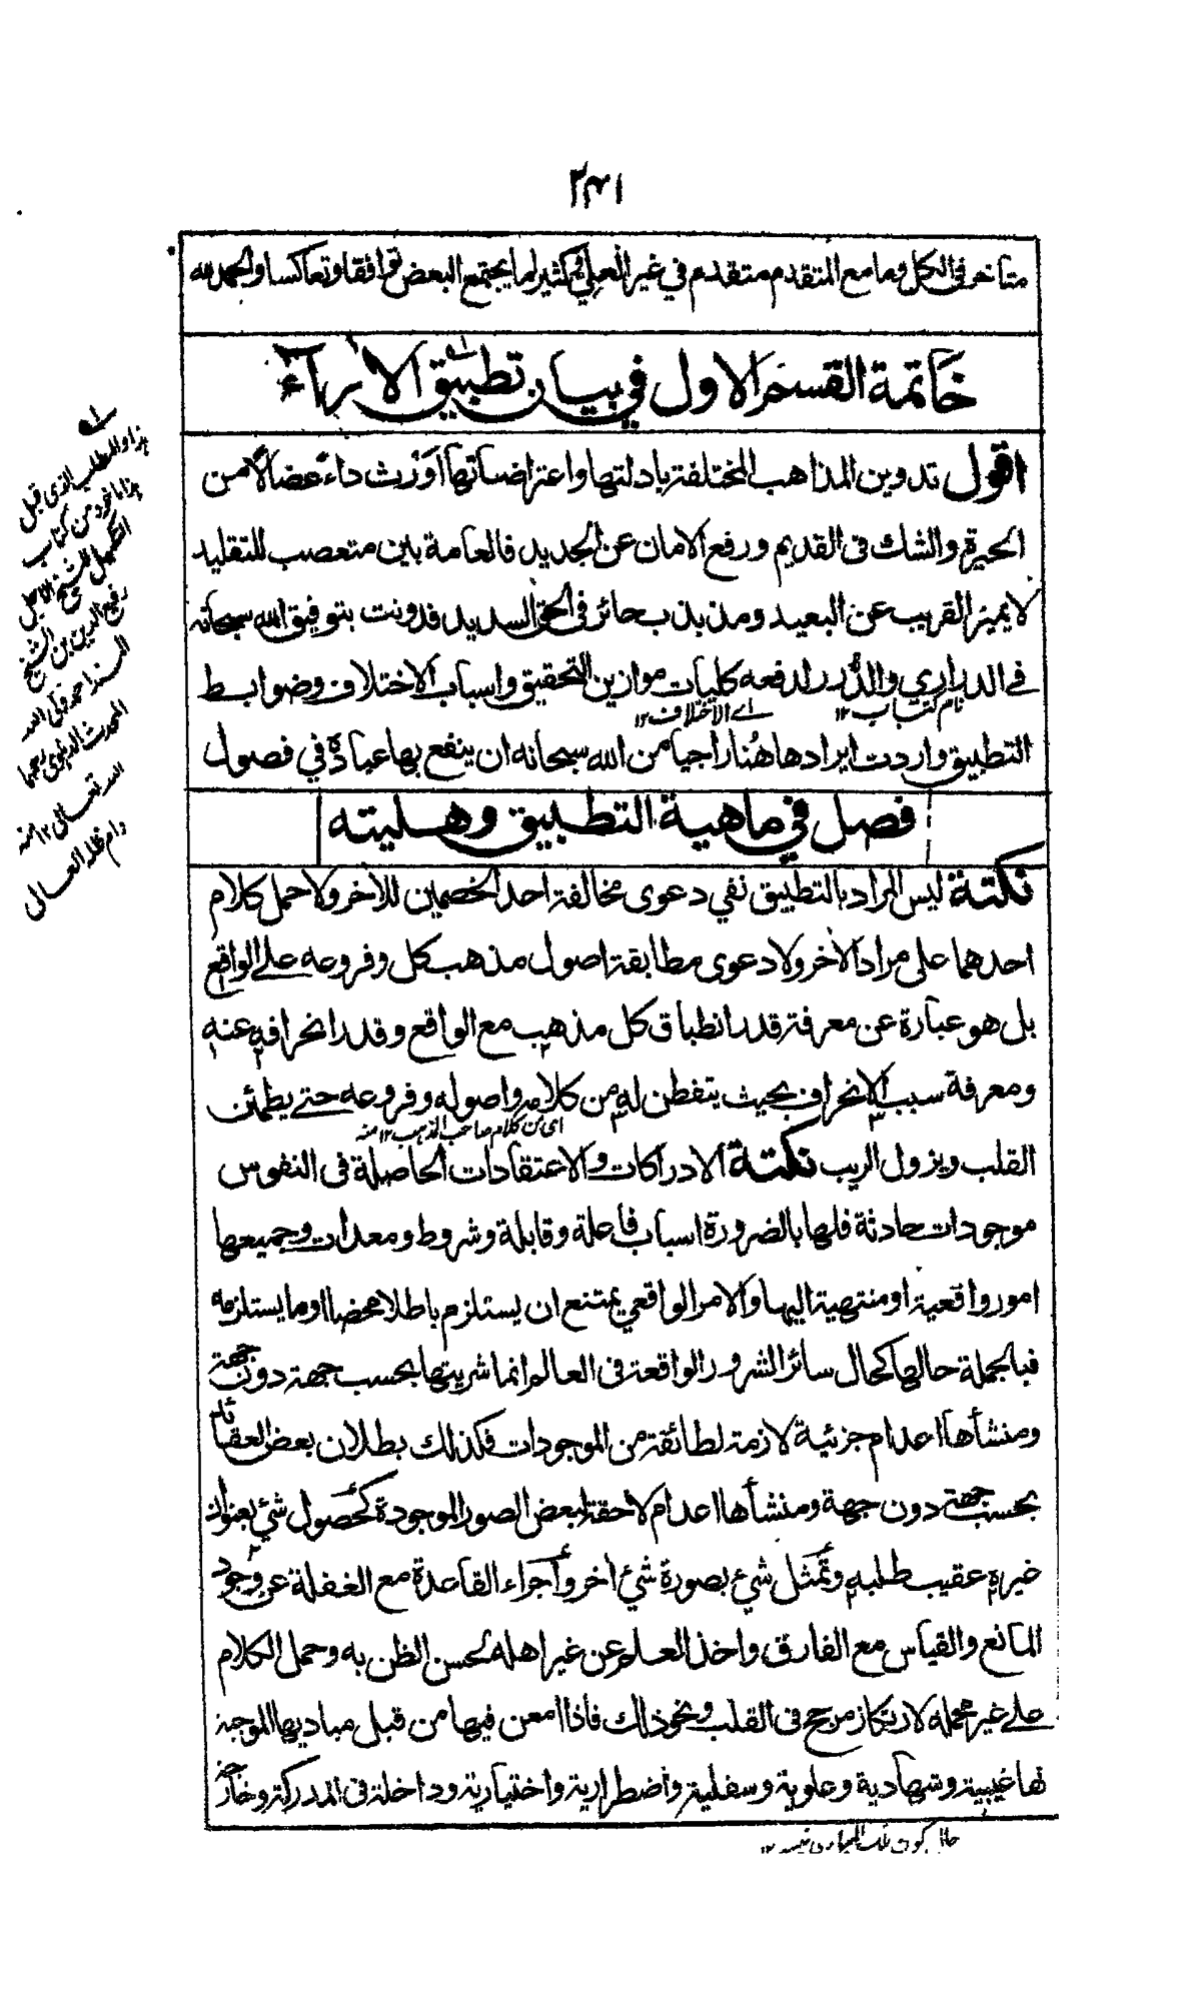 ٢٣١
متاخر في الكل وما مع المتقدم متقدم في غير العلى وكثيرا ما يجتمع البعض توافقا وتعاكسا والحمد لله
خاتمة القسم الاول في بيان تطبيق الآراء
اقول تدوين المذاهب المختلفة بادلتها واعتراضاتها اورث داء عضالا من
الحيرة والشك في القديم ورفع الامان عن الجديد فالعامة بين متعصب للتقليد
لا يميز القريب عن البعيد ومذبذب حائر في الحق السديد فدونت بتوفيق الله سبحانه
في الدراري والدرر لدفعه كليات موازين التحقيق واسباب الاختلاف وضوابط
نام كتاب ١٢ اے الاختلاف ١٢
التطبيق واردت ايرادها هنا راجيا من الله سبحانه ان ينفع بها عباده في فصول
فصل في ماهية التطبيق وهليته
نكتة ليس المراد بالتطبيق نفي دعوى مخالفة احد الخصمين للآخر ولا حمل كلام
احدهما على مراد الآخر ولا دعوى مطابقة اصول مذهب كل وفروعه على الواقع
بل هو عبارة عن معرفة قدر انطباق كل مذهب مع الواقع وقدر انحرافه عنه
ومعرفة سبب الانحراف بحيث يتفطن له من كلامه واصوله وفروعه حتى يطمئن
اى من كلام صاحب المذهب ١٢ منه
القلب ويزول الريب نكتة الادراكات والاعتقادات الحاصلة في النفوس
موجودات حادثة فلها بالضرورة اسباب فاعلة وقابلة وشروط ومعدات وجميعها
امور واقعية او منتهية اليها والامر الواقعي يمتنع ان يستلزم باطلا محضا او ما يستلزمه
فبالجملة حالها كحال سائر الشرور الواقعة في العالم انما شريتها بحسب جهة دون جهة
ومنشأها اعدام جزئية لازمة لطائفة من الموجودات فكذلك بطلان بعض العقائد
بحسب جهة دون جهة ومنشأها اعدام لاحقة لبعض الصور الموجودة كحصول شئ بعنوان
غيره عقيب طلبه وتمثل شئ بصورة شئ اخر واجراء القاعدة مع الغفلة عن وجود
المانع والقياس مع الفارق واخذ العلم عن غير اهله لحسن الظن به وحمل الكلام
على غير محمله لارتكاز مرجح في القلب ونحو ذلك فاذا امعن فيها من قبل مباديها الموجبة
لها غيبية وشهادية وعلوية وسفلية واضطرارية واختيارية وداخلة في المدركة وخارجة
هذا والمطلب الذي قبل
هذا ماخوذ من كتاب
التكميل للشيخ الاجل
رفيع الدين بن الشيخ
السند احمد ولى الله
المحدث الدهلوى رحمهما
الله تعالى ١٢ منه
دام ظله العالى